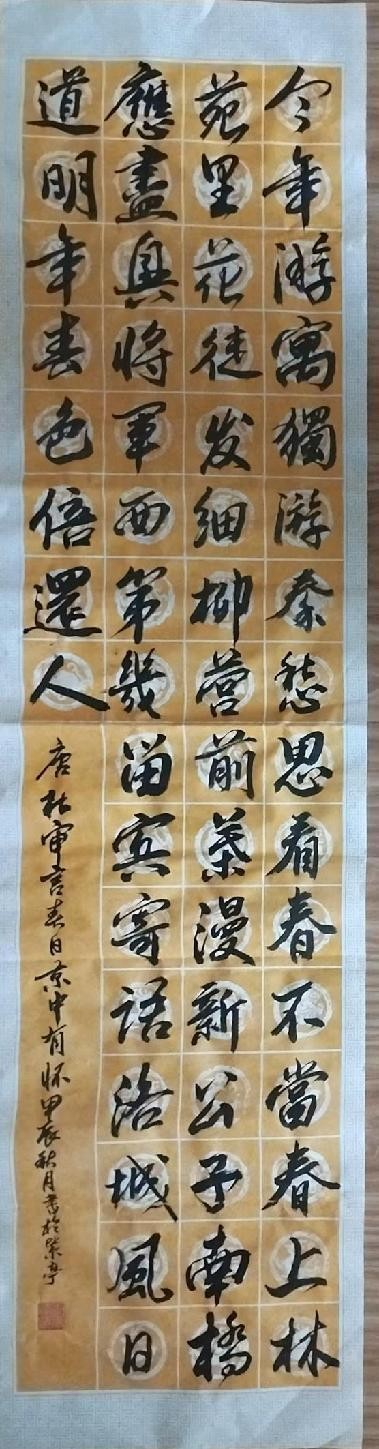 今年游寓獨游秦愁思看春不當春上林
苑里花徒发细柳營前葉漫新公子南橋
應盡興將軍西第幾留賓寄語洛城風日
道明年春色倍還人
唐杜审言春日京中有怀甲辰秋月書於